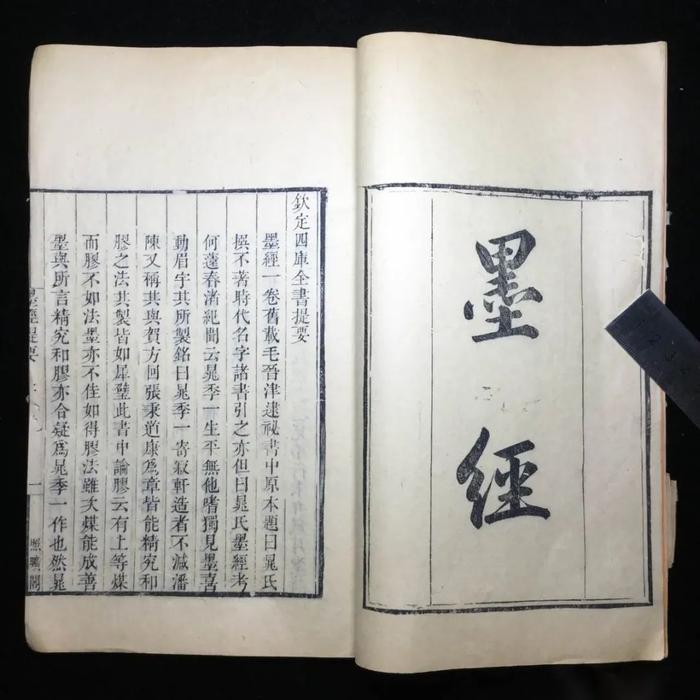 墨經
欽定四庫全書提要
墨經一卷舊載毛晉津逮祕書中原本題曰晁氏
撰不著時代名字諸書引之亦但曰晁氏墨經考
何薳春渚紀聞云晁季一生平無他嗜獨見墨喜
動眉宇其所製銘曰晁季一寄寂軒造者不減潘
陳又稱其與賀方回張秉道康爲章皆能精究和
膠之法其製皆如犀璧此書中論膠云有上等煤
而膠不如法墨亦不佳如得膠法雖次煤能成善
墨與所言精究和膠亦合疑爲晁季一作也然晁
墨經提要
一
照曠閣